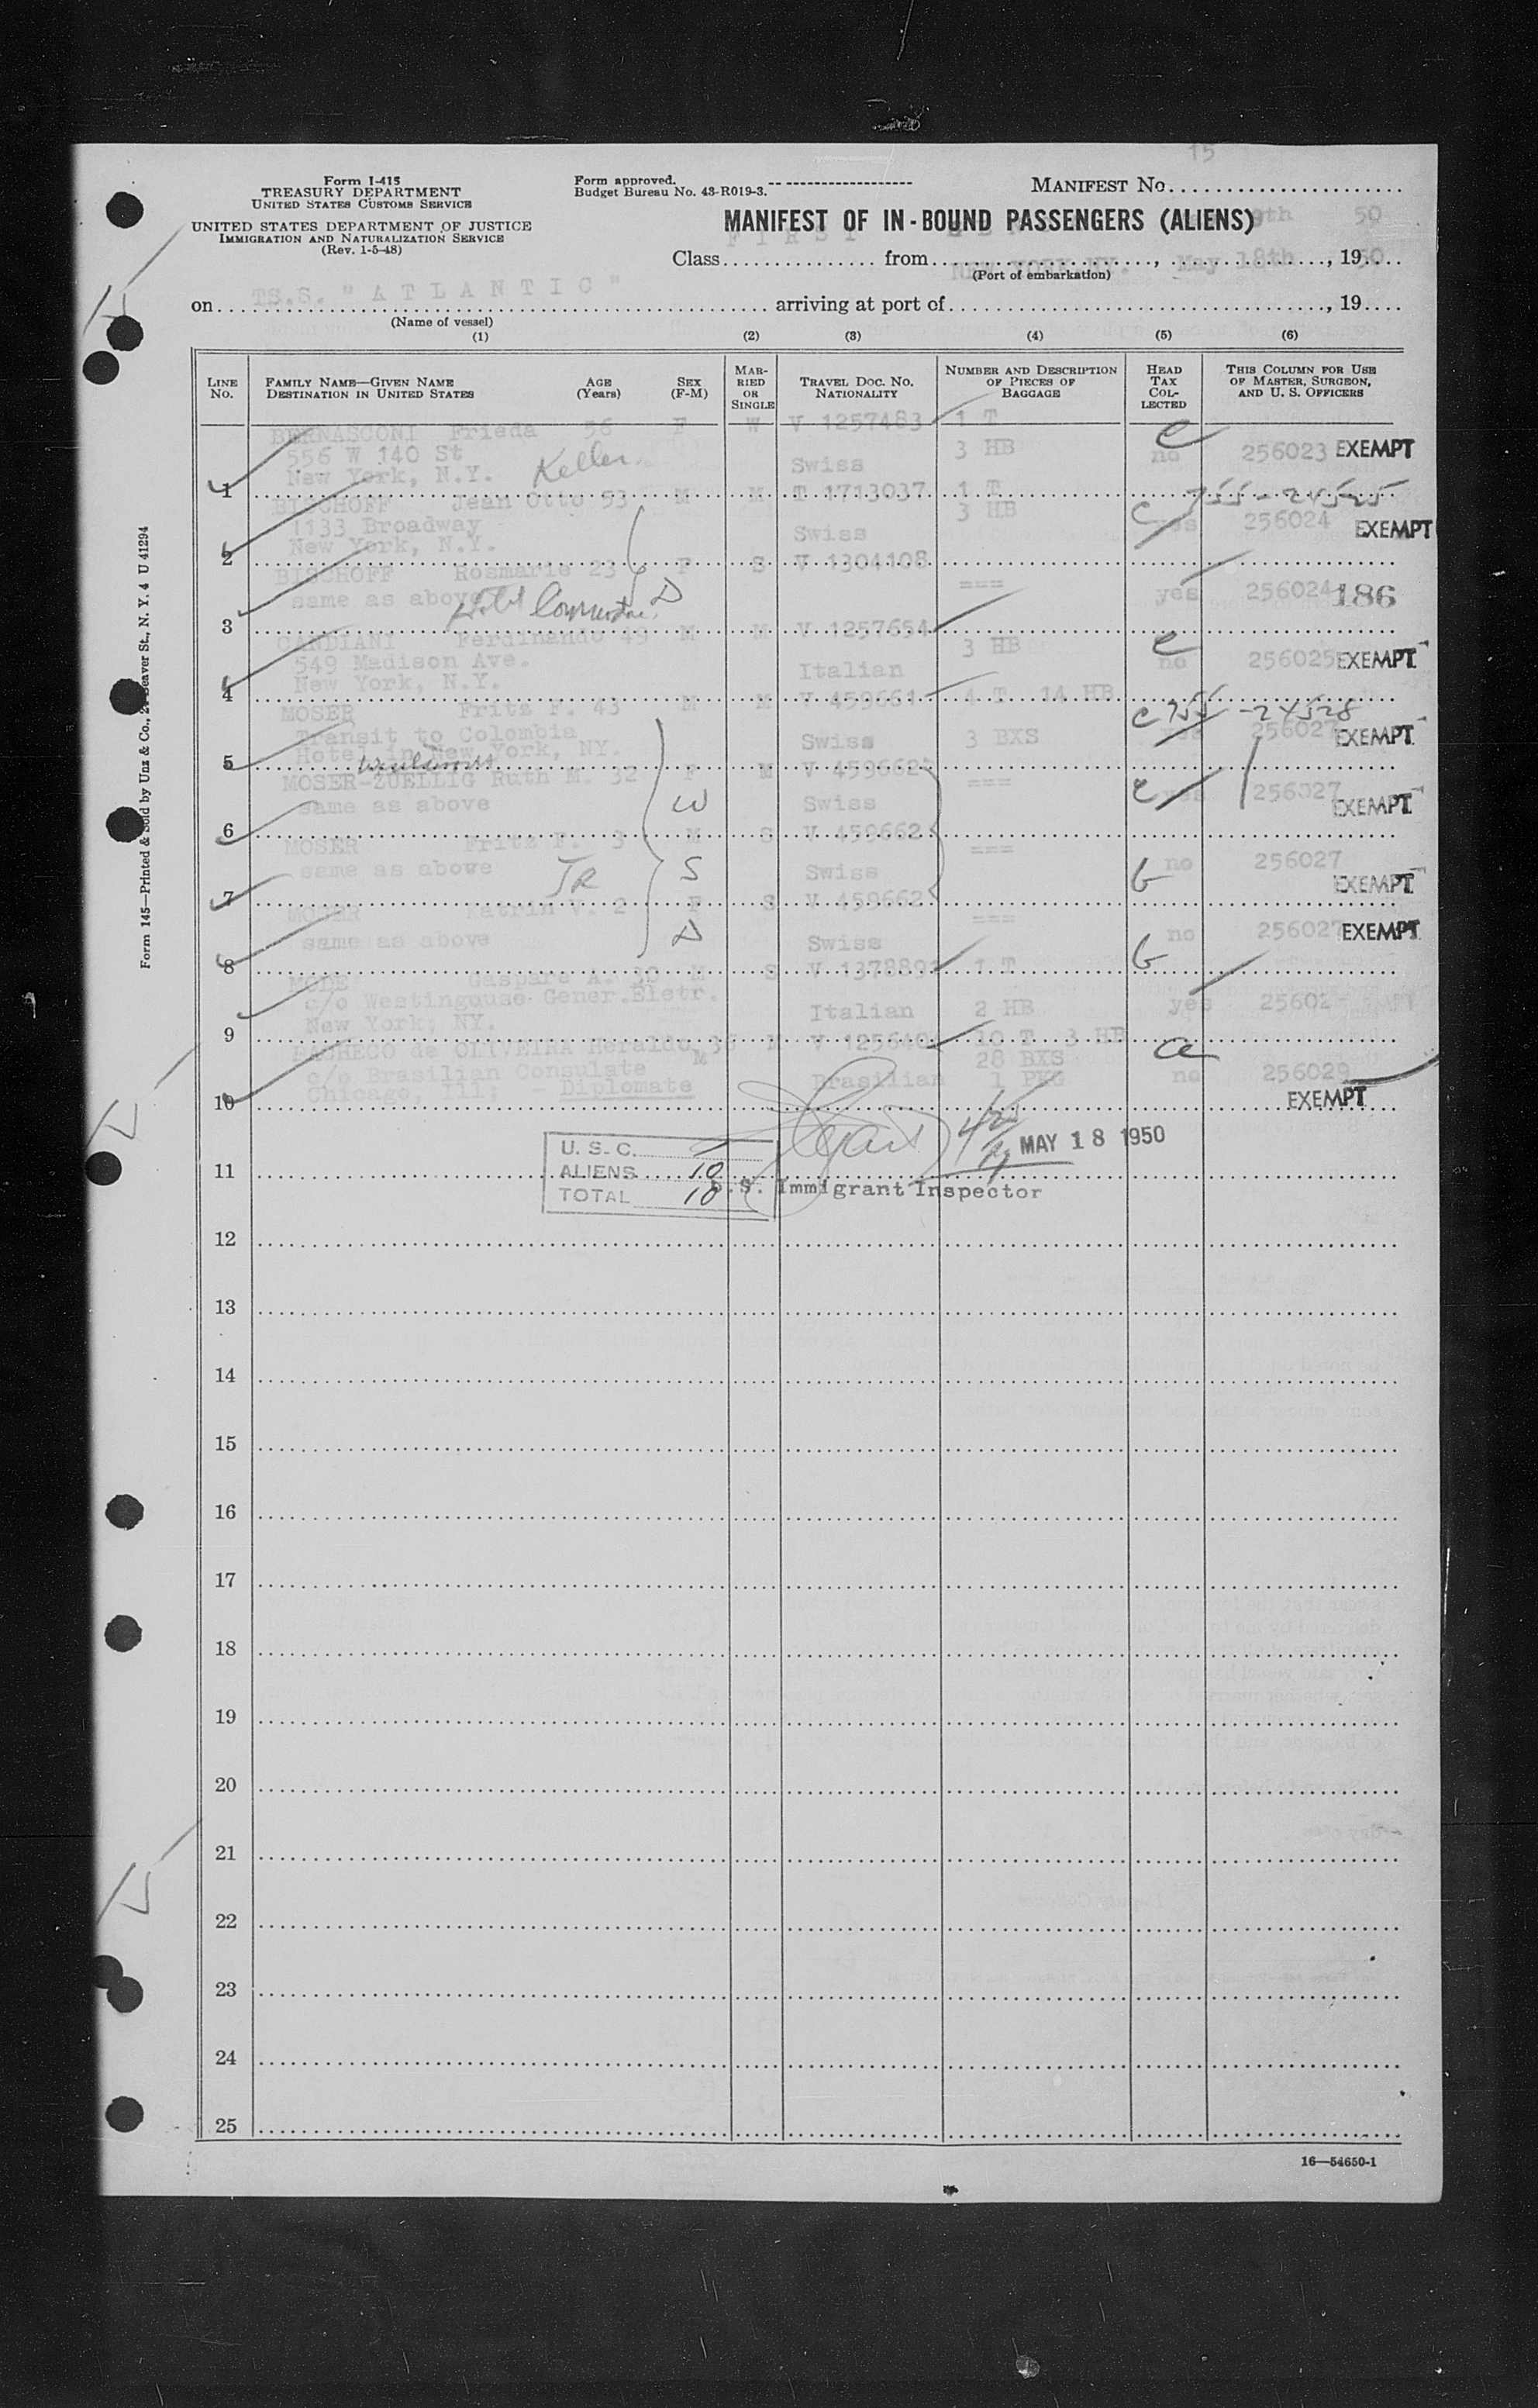 15
Form I-415
TREASURY DEPARTMENT
UNITED STATES CUSTOMS SERVICE
UNITED STATES DEPARTMENT OF JUSTICE
IMMIGRATION AND NATURALIZATION SERVICE
(Rev. 1-5-48)
Form approved.
Budget Bureau No. 43-R019-3.
MANIFEST NO.
MANIFEST OF IN-BOUND PASSENGERS (ALIENS)
9th 50
FIRST
Class from , , 19
NEW YORK NY. May 18th 50
(Port of embarkation)
TS.S. "ATLANTIC"
on arriving at port of , 19
(Name of vessel)
(1) (2) (3) (4) (5) (6)
LINE NO. FAMILY NAME—GIVEN NAME DESTINATION IN UNITED STATES AGE (Years) SEX (F-M) MARRIED OR SINGLE TRAVEL DOC. NO. NATIONALITY NUMBER AND DESCRIPTION OF PIECES OF BAGGAGE HEAD TAX COLLECTED THIS COLUMN FOR USE OF MASTER, SURGEON, AND U. S. OFFICERS
BERNASCONI Frieda 56 F W V 1257483 1 T
556 W 140 St 3 HB no 256023 EXEMPT
New York, N.Y. Keller Swiss
1
BISCHOFF Jean Otto 53 M M T 1713037 1 T 755-24525
1133 Broadway 3 HB yes 256024 EXEMPT
New York, N.Y. Swiss
2
BISCHOFF Rosmarie 23 F S V 1304108
same as above D === yes 256024 186
Hotel
3
CANDIANI Ferdinando 49 M M V 1257654
549 Madison Ave. 3 HB no 256025 EXEMPT
New York, N.Y. Italian
4
MOSER Fritz F. 43 M M V 459661 4 T 14 HB 755-24528
Transit to Colombia Swiss 3 BXS 256027 EXEMPT
Hotel in New York, NY.
5
MOSER-ZUELLIG Ruth M. 32 F M V 459662 ===
same as above W Swiss yes 256027 EXEMPT
6
MOSER Fritz F. 3 M S V 459662 ===
same as above JR S Swiss no 256027 EXEMPT
7
MOSER Katrin V. 2 F S V 459662 ===
same as above D Swiss no 256027 EXEMPT
8
Gaspare A. 30 M S V 137889 1 T
c/o Westingouse Gener.Eletr. Italian 2 HB yes 25602
New York, NY.
9
PACHECO de OLIVEIRA Heraldo 3 M M V 125640 10 T 3 HB
c/o Brasilian Consulate 28 BXS
Chicago, Ill; - Diplomate Brasilian 1 PKG no 256029 EXEMPT
10
MAY 18 1950
U. S. C.
11
ALIENS 10
TOTAL 10
U.S. Immigrant Inspector
12
13
14
15
16
17
18
19
20
21
22
23
24
25
16—54650-1
Form 145—Printed & Sold by Unz & Co., Beaver St., N. Y. 4 U 41294